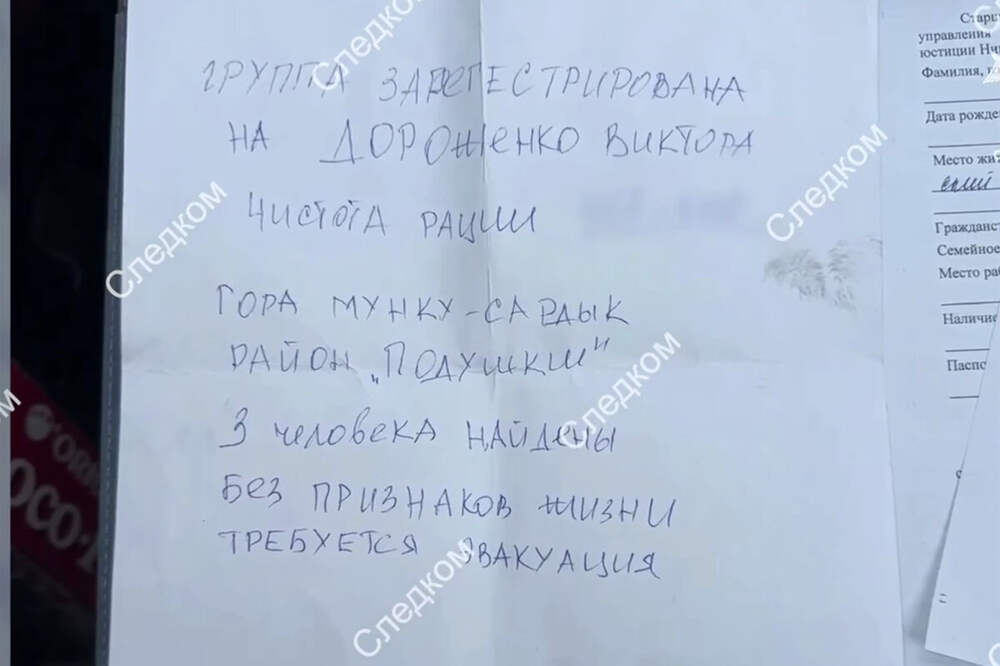 ГРУППА ЗАРЕГЕСТРИРОВАНА
НА ДОРОЖЕНКО ВИКТОРА
ЧИСТОТА РАЦИИ
ГОРА МУНКУ-САРДЫК
РАЙОН „ПОДУШКИ"
3 ЧЕЛОВЕКА НАЙДЕНЫ
БЕЗ ПРИЗНАКОВ ЖИЗНИ
ТРЕБУЕТСЯ ЭВАКУАЦИЯ
Следком
Следком
Следком
Следком
Следком
Старш
управления
юстиции
Фамилия,
Дата рожде
Место жи
Гражданс
Семейное
Место ра
Наличие
Паспо